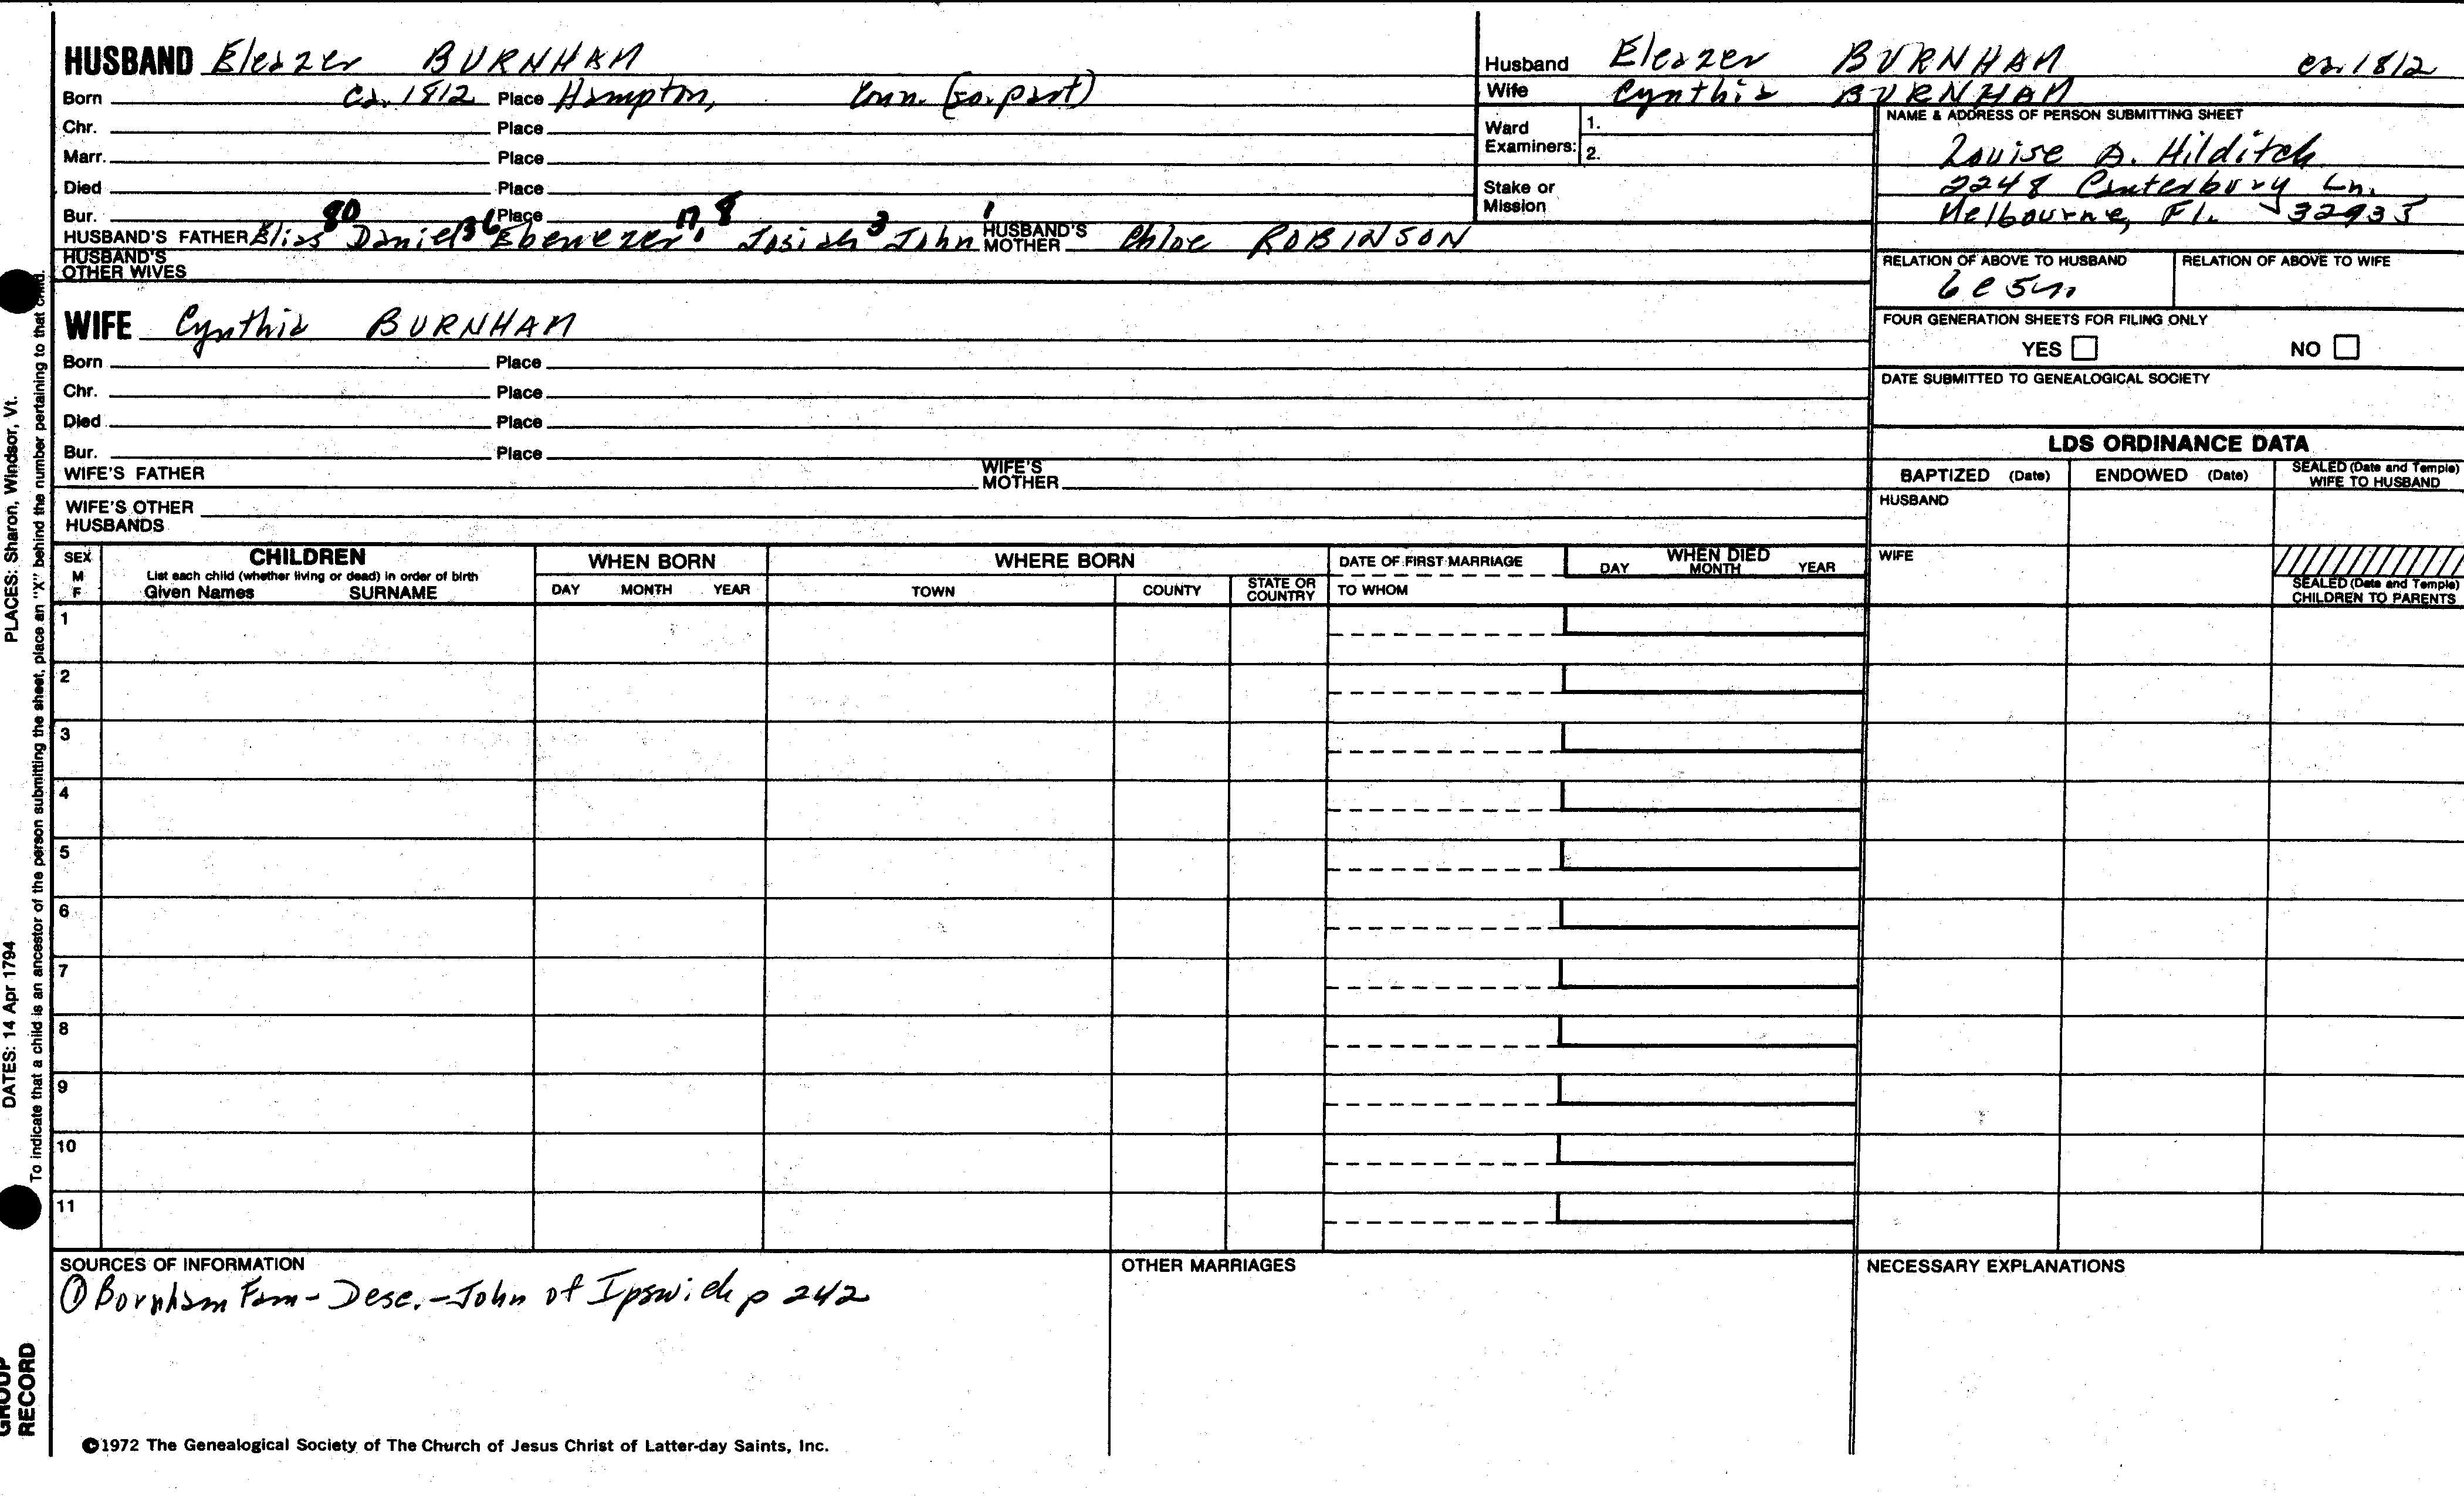 HUSBAND Eleazer BURNHAM
Born ca. 1812 Place Hampton, Conn. (so. part)
Chr. Place
Marr. Place
Died Place
Bur. Place
80 36 17 8 3 1
HUSBAND'S FATHER Elias Daniel Ebenezer Josiah John HUSBAND'S MOTHER Chloe ROBINSON
HUSBAND'S OTHER WIVES
WIFE Cynthia BURNHAM
Born Place
Chr. Place
Died Place
Bur. Place
WIFE'S FATHER WIFE'S MOTHER
WIFE'S OTHER HUSBANDS
Husband Eleazer BURNHAM ca. 1812
Wife Cynthia BURNHAM
Ward Examiners: 1.
2.
Stake or Mission
NAME & ADDRESS OF PERSON SUBMITTING SHEET
Louise D. Hilditch
2248 Canterbury Ln.
Melbourne, Fl. 32935
RELATION OF ABOVE TO HUSBAND RELATION OF ABOVE TO WIFE
6c
FOUR GENERATION SHEETS FOR FILING ONLY
YES NO
DATE SUBMITTED TO GENEALOGICAL SOCIETY
LDS ORDINANCE DATA
BAPTIZED (Date) ENDOWED (Date) SEALED (Date and Temple) WIFE TO HUSBAND
HUSBAND
WIFE
SEALED (Date and Temple) CHILDREN TO PARENTS
SEX M F
CHILDREN
List each child (whether living or dead) in order of birth
Given Names SURNAME
WHEN BORN
DAY MONTH YEAR
WHERE BORN
TOWN COUNTY STATE OR COUNTRY
DATE OF FIRST MARRIAGE
TO WHOM
WHEN DIED
DAY MONTH YEAR
1
2
3
4
5
6
7
8
9
10
11
SOURCES OF INFORMATION
① Burnham Fam - Desc. - John of Ipswich p 242
OTHER MARRIAGES
NECESSARY EXPLANATIONS
©1972 The Genealogical Society of The Church of Jesus Christ of Latter-day Saints, Inc.
PLACES: Sharon, Windsor, Vt.
DATES: 14 Apr 1794
To indicate that a child is an ancestor of the person submitting the sheet, place an "X" behind the number pertaining to that child.
GROUP
RECORD